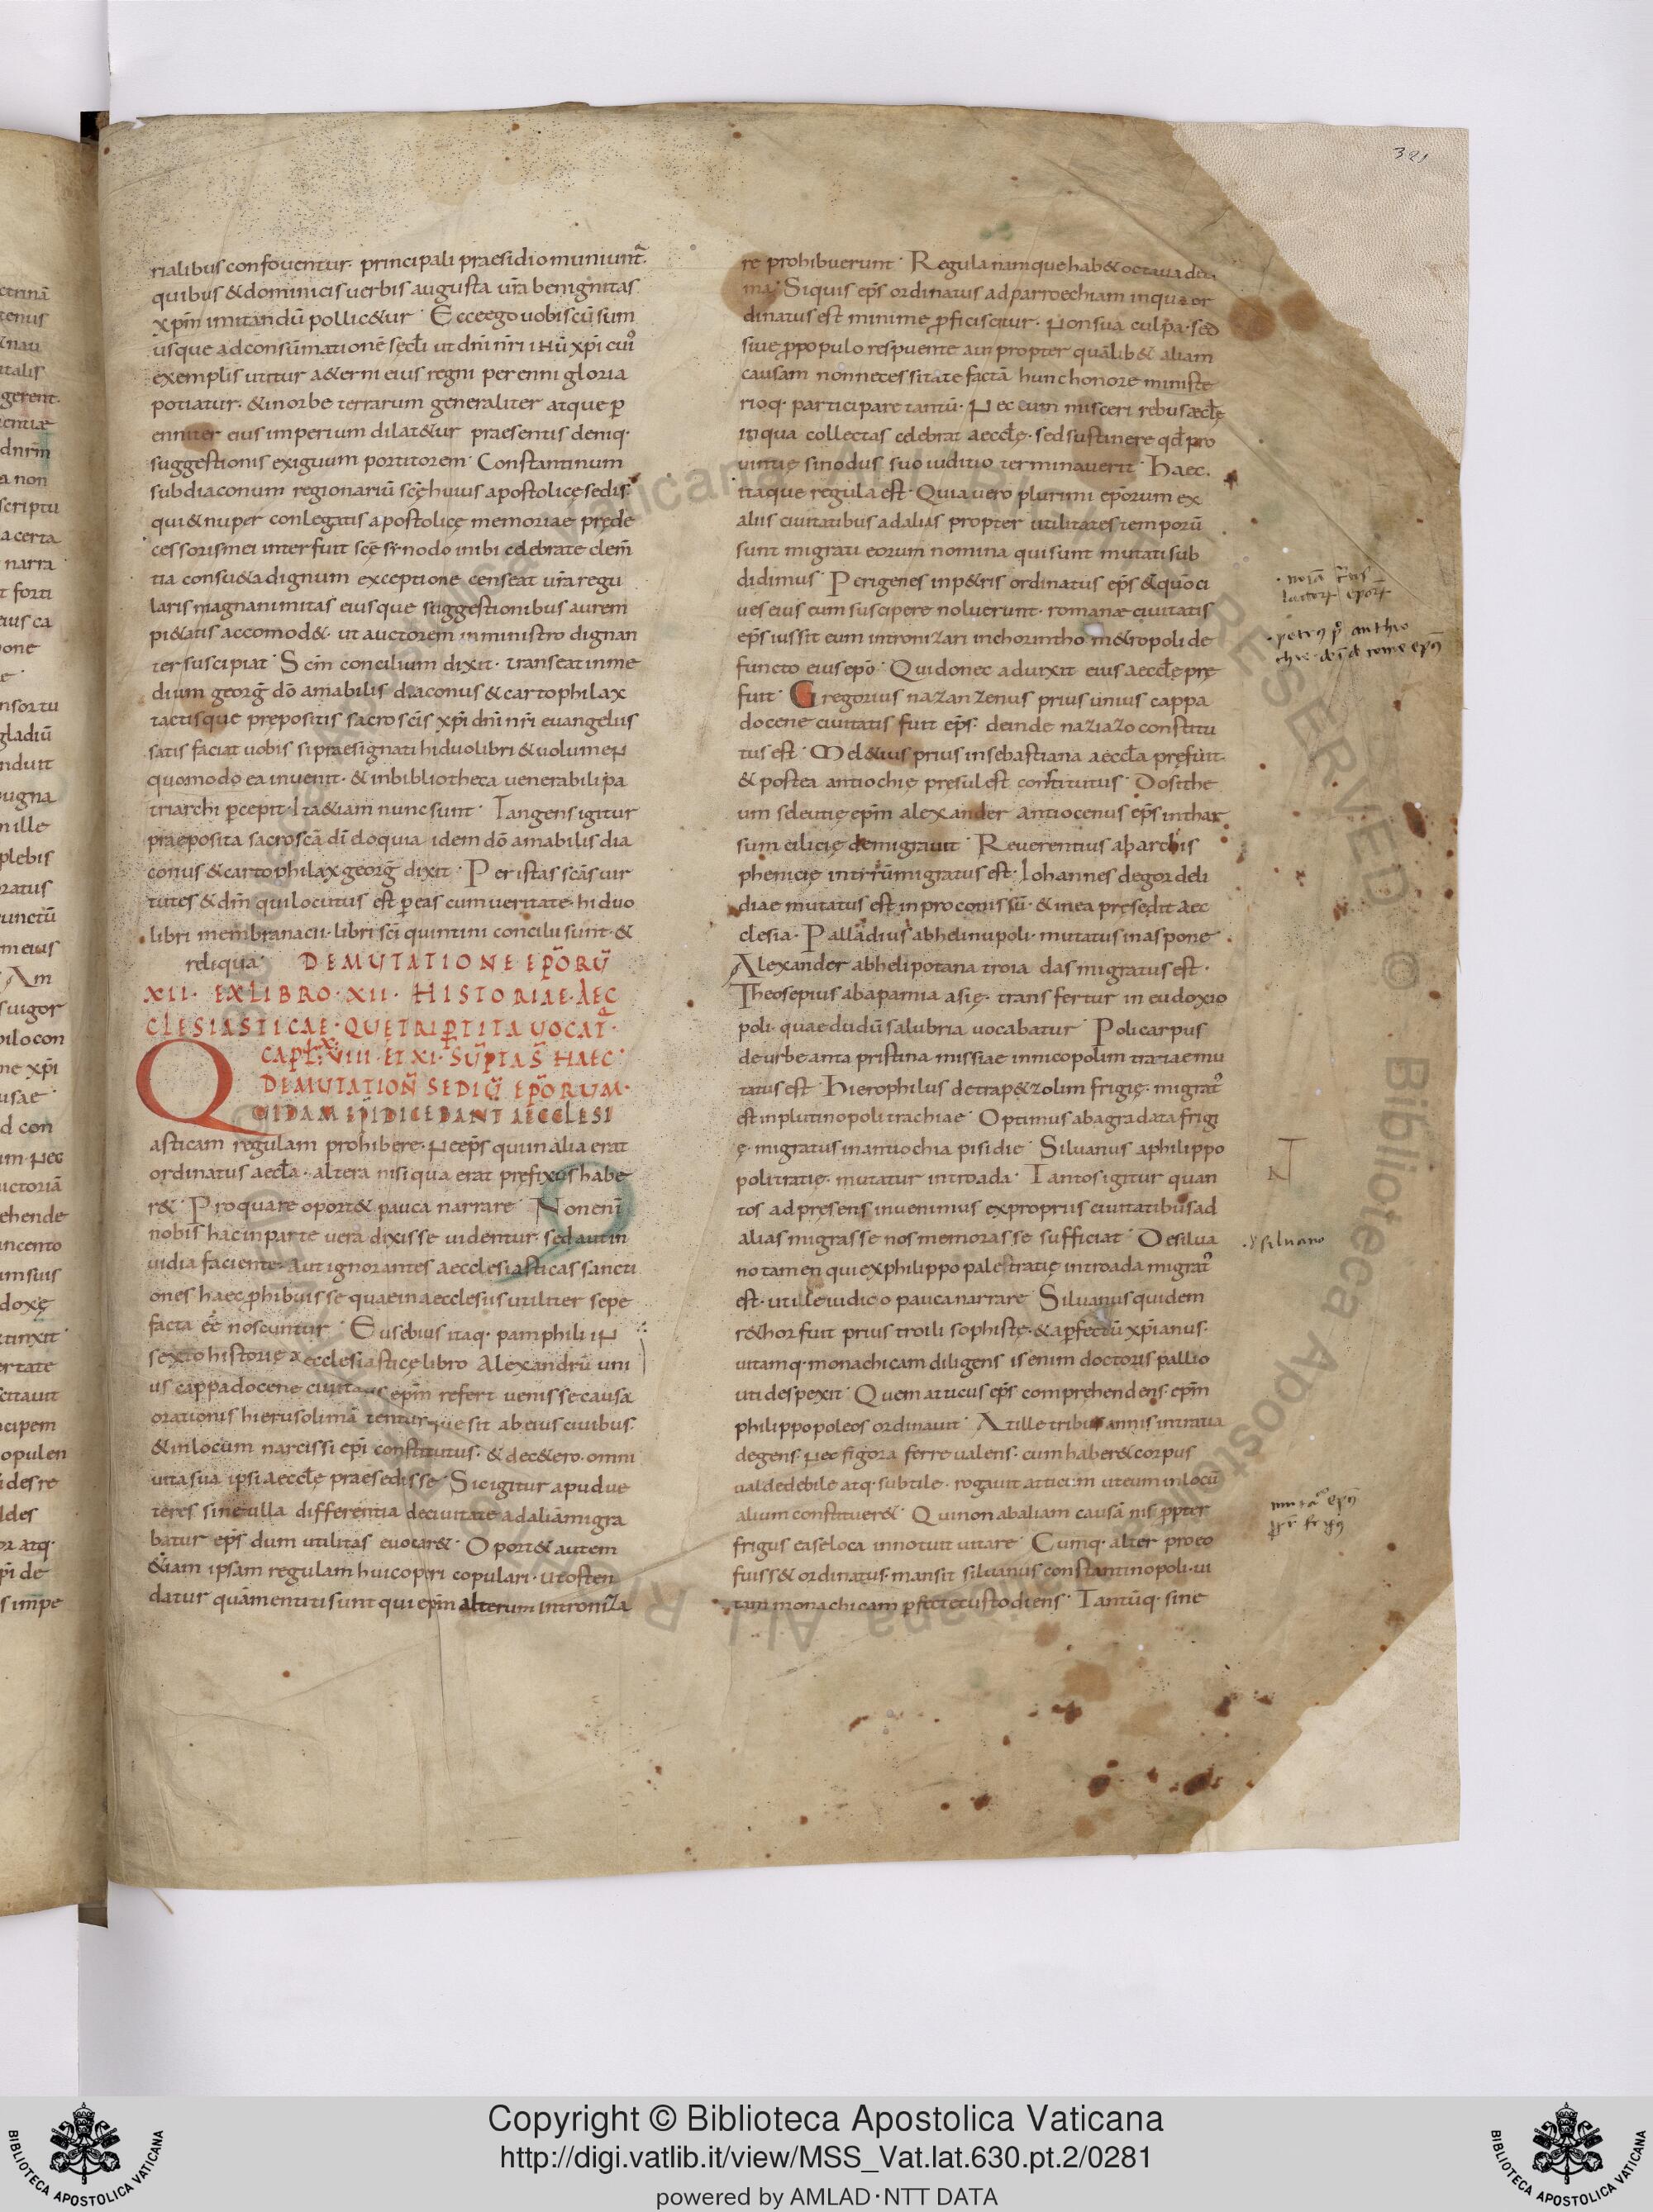 321
rialibus confouentur· principali praesidio muniunt̃·
quibus & dominicis uerbis augusta ur̃a benignitas
xp̃m imitandũ pollic&ur· Ecce ego uobiscũ sum
usque ad consũmationẽ sęcl̃i ut dñi nr̃i ihũ xp̃i cui᾽
exemplis utitur a&erni eius regni perenni gloria
potiatur· & in orbe terrarum generaliter atque p̱
enniter eius imperium dilat&ur praesentis deniq·
suggestionis exiguum portitorem· Constantinum
subdiaconum regionariũ scę̃ huius apostolicę sedis·
qui & nuper con legatis apostolicę memoriae pręde
cessoris mei interfuit scę̃ sinodo inibi celebrate clem̃
tia consu&a dignum exceptione censeat ur̃a regu
laris magnanimitas eiusque suggestionibus aurem
pi&atis accomod&· ut auctorem in ministro dignan
ter suscipiat· Scm̃ concilium dixit· transeat in me
dium georg̃ dõ amabilis diaconus & cartophilax
tactisque prepositis sacro scĩs xp̃i dñi nr̃i euangeliis
satis faciat uobis si praesignati hi duo libri & volumen
quomodo ea inuenit· & in bibliotheca uenerabili pa
triarchi p̱cepit· Ita &iam nunc sunt· Tangens igitur
praeposita sacroscã dĩ eloquia idem dõ amabilis dia
conus & cartophilax georg̃ dixit· Per istas scãs uir
tutes & dm̃ qui locutus est p̱ eas cum ueritate hi duo
libri membranacii· libri scĩ quintini concilii sunt· &
reliqua· DE MUTATIONE EP̃ORŨ
XII· EX LIBRO· XII· HISTORIAE· AEC
CLESIASTICAE· QUE TRIP̱TITA UOCAT̃·
CAPL̃· VIII· ET XI· SUP̱TAS HAEC·
DE MUTATION̄ SEDIŨ EP̃ORUM·
QUIDAM EP̃I DICEBANT AECCLESI
asticam regulam prohibere· Nec ep̃s qui in alia erat
ordinatus aeccl̃a· altera nisi qua erat prefixus habe
r&· Pro quare oport& pauca narrare· Non enĩ
nobis hac in parte uera dixisse uidentur· sed aut in
uidia faciente· Aut ignorantes aecclesiasticas sancti
ones haec p̱hibuisse quae in aecclesiis utiliter sepe
facta eẽ noscuntur· Eusebius itaq· pamphili in
sexto historię aecclesiasticę libro Alexandrũ uni
us cappadocene ciuitatis ep̃m refert uenisse causa
orationis hierusolimã tentus que sit ab eius ciuibus·
& in locum narcissi ep̃i constitutus· & dec&ero omni
uita sua ipsi aeccl̃ę praesedisse· Sic igitur apud ue
teres sine ulla differentia de ciuitate ad aliã migra
batur ep̃s dum utilitas euocar&· Oport& autem
&iam ipsam regulam huic operi copulari· ut osten
datur quã mentiti sunt qui ep̃m alterum introniza
re prohibuerunt· Regula namque hab& octaua deci
ma· Siquis ep̃s ordinatus ad parroechiam in qua or
dinatus est minime p̱ficiscitur· non sua culpa· sed
siue p̱ populo respuente aut propter quãlib& aliam
causam non necessitate factã hunc honore ministe
rioq· participare tantũ· Nec eum misceri rebus aeccl̃ę
in qua collectas celebrat aeccl̃ę· sed sustinere qd̃ pro
uintię sinodus suo iuditio terminauerit· Haec
itaque regula est· Quia uero plurimi ep̃orum ex
aliis ciuitatibus ad alias propter utilitates temporũ
sunt migrati eorum nomina qui sunt mutati sub
didimus· Perigenes in p&ris ordinatus ep̃s & quõ ci
ues eius eum suscipere noluerunt· romanae ciuitatis
ep̃s iussit eum intronizari in chorintho m&ropoli de
functo eius ep̃o· Qui donec aduixit eius aeccl̃ę prę
fuit· Gregorius nazanzenus prius unius cappa
docene ciuitatis fuit ep̃s· deinde naziazo constitu
tus est· Mel&ius prius in sebastiana aeccl̃a pręfuit·
& postea antiochię presul est constitutus· Dosithe
um seleutię ep̃m alexander antiocenus ep̃s in thar
sum cilicię demigrauit· Reuerentius ab archis
phenicię in tirũ migratus est· Iohannes de gordeli
diae mutatus est in proconissũ· & in ea presedit aec
clesia· Palladius ab helinupoli· mutatus in aspone·
Alexander ab helipotana troia das migratus est·
Theosepius ab apamia asię· transfertur in eudoxio
poli· quae dudũ salubria uocabatur· Policarpus
de urbe anta pristina missiae in nicopolim traciae mu
tatus est· Hierophilus de trap&zolim frigię· migrat᾽
est in plutinopoli trachiae· Optimus ab agradata frigi
ę· migratus in antiochia pisidie· Silvanus a philippo
poli tratię· mutatur in troada· Tantos igitur quan
tos ad presens inuenimus ex propriis ciuitatibus ad
alias migrasse nos memorasse sufficiat· De silua
no tamen qui ex philippo pale stratię in troada migrat᾽
est· utille iudico pauca narrare· Silvanus quidem
r&hor fuit prius troili sophistę· & a p̱fectũ xp̃ianus·
uitamq· monachicam diligens is enim doctoris pallio
uti despexit· Quem aticus ep̃s comprehendens· ep̃m
philippopoleos ordinauit· At ille tribus annis in tratia
degens· nec figora ferre ualens· cum haber& corpus
ualde debile atq· subtile· rogauit atticum ut eum in locũ
alium constituer&· Qui non ab aliam causã nis p̱pter
frigus ease loca innotuit uitare· Cumq· alter pro eo
fuiss& ordinatus· mansit siluanus constantinopoli· ui
tam monachicam p̱fecte custodiens· Tantũq· sine
d̃ siluano
Copyright © Biblioteca Apostolica Vaticana
http://digi.vatlib.it/view/MSS_Vat.lat.630.pt.2/0281
powered by AMLAD·NTT DATA
BIBLIOTECA APOSTOLICA VATICANA
BIBLIOTECA APOSTOLICA VATICANA